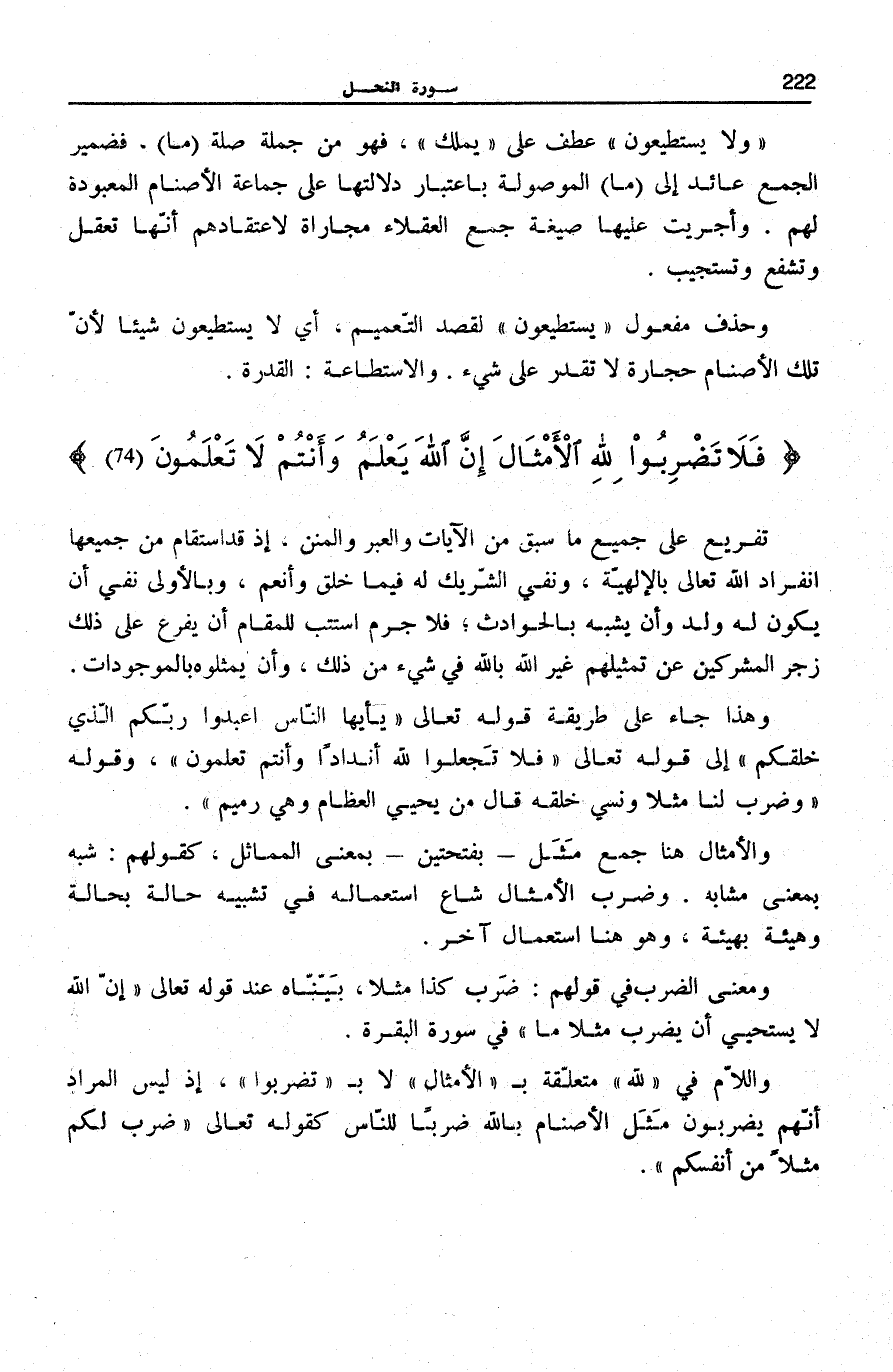 222
سورة النحل
« ولا يستطيعون » عطف على « يملك » ، فهو من جملة صلة (ما) . فضمير
الجمع عائد إلى (ما) الموصولة باعتبار دلالتها على جماعة الأصنام المعبودة
لهم . وأجريت عليها صيغة جمع العقلاء مجاراة لاعتقادهم أنّها تعقل
وتشفع وتستجيب .
وحذف مفعول « يستطيعون » لقصد التّعميم ، أي لا يستطيعون شيئا لأنّ
تلك الأصنام حجارة لا تقدر على شيء . والاستطاعة : القدرة .
﴿ فَلَا تَضْرِبُواْ لِلهِ ٱلْأَمْثَالَ إِنَّ ٱللهَ يَعْلَمُ وَأَنْتُمْ لَا تَعْلَمُونَ (74) ﴾
تفريع على جميع ما سبق من الآيات والعبر والمنن ، إذ قد استقام من جميعها
انفراد الله تعالى بالإلهيّة ، ونفي الشّريك له فيما خلق وأنعم ، وبالأولى نفي أن
يكون له ولد وأن يشبه بالحوادث ؛ فلا جرم استتب للمقام أن يفرع على ذلك
زجر المشركين عن تمثيلهم غير الله بالله في شيء من ذلك ، وأن يمثلوه بالموجودات .
وهذا جاء على طريقة قوله تعالى « يأيها النّاس اعبدوا ربّكم الّذي
خلقكم » إلى قوله تعالى « فلا تجعلوا لله أندادًا وأنتم تعلمون » ، وقوله
« وضرب لنا مثلا ونسي خلقه قال من يحيي العظام وهي رميم » .
والأمثال هنا جمع مَثَل – بفتحتين – بمعنى المماثل ، كقولهم : شبه
بمعنى مشابه . وضرب الأمثال شاع استعماله في تشبيه حالة بحالة
وهيئة بهيئة ، وهو هنا استعمال آخر .
ومعنى الضرب في قولهم : ضَرب كذا مثلا ، بَيّنّاه عند قوله تعالى « إنّ الله
لا يستحيي أن يضرب مثلا ما » في سورة البقرة .
واللاّم في « لله » متعلّقة بـ « الأمثال » لا بـ « تضربوا » ، إذ ليس المراد
أنّهم يضربون مَثَل الأصنام بالله ضربًا للنّاس كقوله تعالى « ضرب لكم
مثلاً من أنفسكم » .